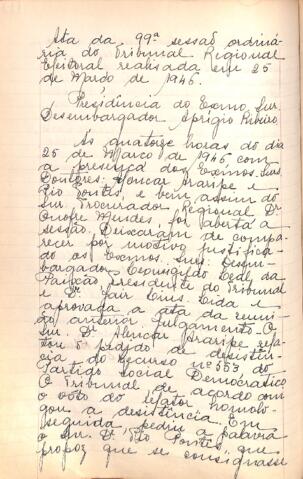 Ata da 99ª sessão ordiná-
ria do Tribunal Regional
Eleitoral realisada em 25
de Março de 1946.
Presidência do Exmo. Snr.
Desembargador Aprigio Ribeiro.
Ás quatorze horas do dia
25 de Março de 1946, com
a presença dos Exmos. Snrs.
Doutores: Alencar Araripe e
Pio Pontes, e bem assim do
Snr. Procurador Regional Dr.
Onofre Mendes, foi aberta a
sessão. Deixaram de compa-
recer por motivo justifica-
do os Exmos. Snrs. Desem-
bargador Leal da
Paixão, Presidente do Tribunal
e Dr. Jair Lins. Lida e
aprovada a ata da reuni-
ão anterior. Julgamento. O
Snr. Dr. Alencar Araripe rela-
tou o pedido de desistên-
cia do Recurso nº 553 do
Partido Social Democrático.
O Tribunal de acordo com
o voto do relator homolo-
gou a desistência. Em
seguida pediu a palavra
o Snr. Dr. Pio Pontes, que
propoz que se consignasse